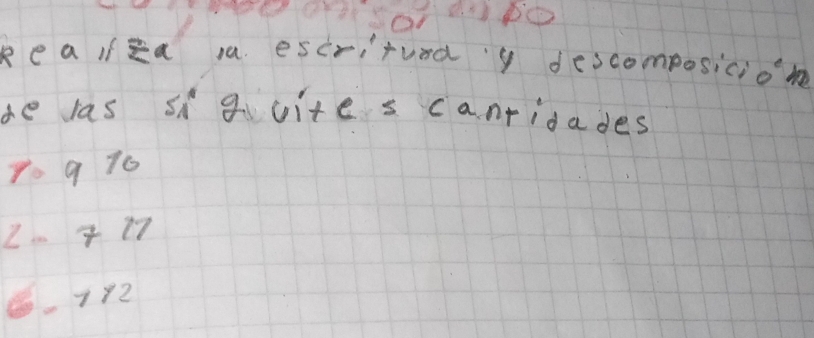 Realiza la escritura y descomposición
de las siguites cantidades
1. 910
2- 717
6. 112